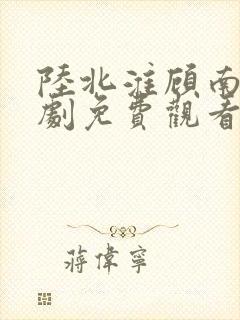 陸北淮顧南
劇免費觀看
蔣偉寧